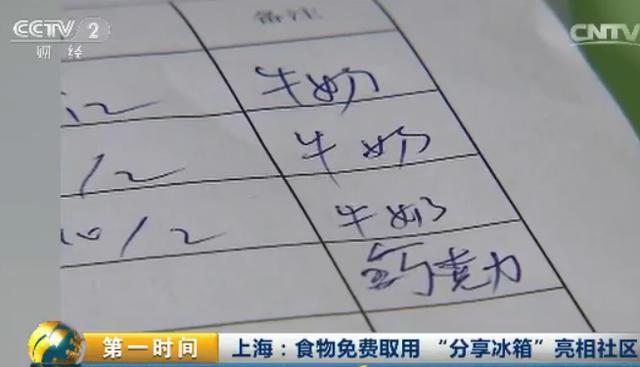 CCTV 2
财经
CNTV
备注
12 牛奶
12 牛奶
10/2 牛奶
巧克力
第一时间
上海：食物免费取用 “分享冰箱”亮相社区